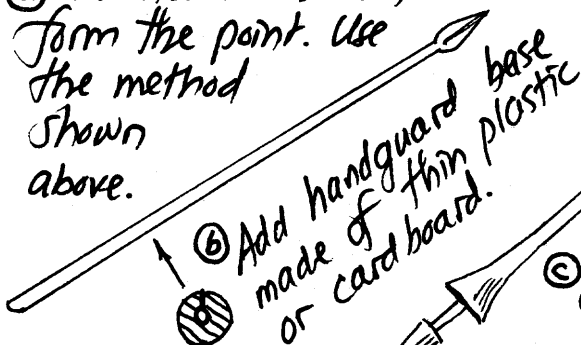 form the point. Use
the method
shown
above.
ⓑ Add handguard base
made of thin plastic
or cardboard.
ⓒ